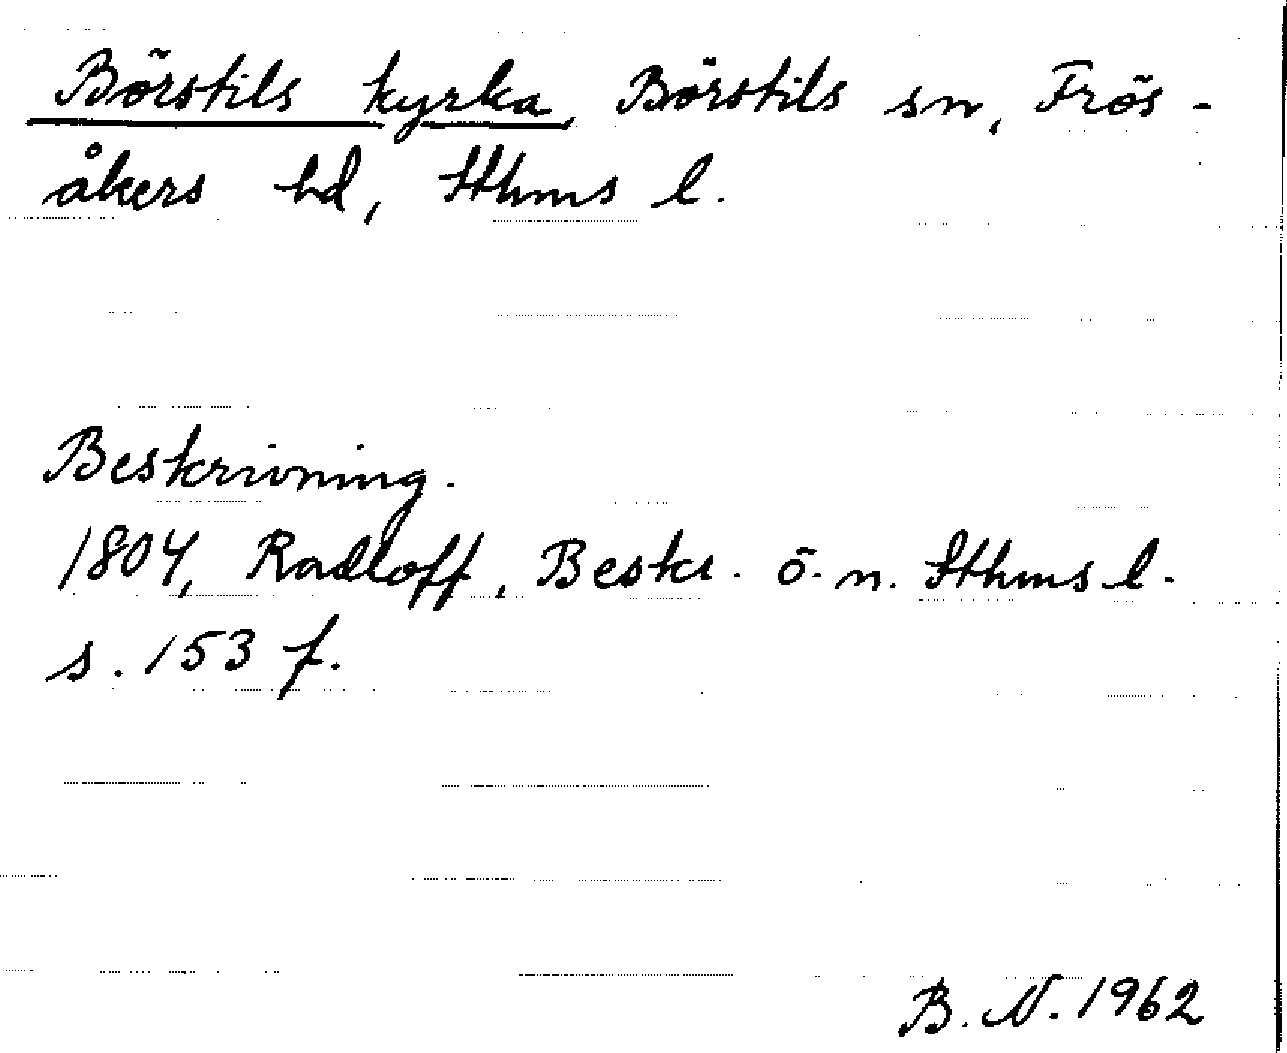 Börstils kyrka, Börstils sn, Frös-
åkers hd, Sthms l.
Beskrivning.
1804, Radloff, Beskr. ö. n. Sthms l.
s. 153 f.
B. N. 1962